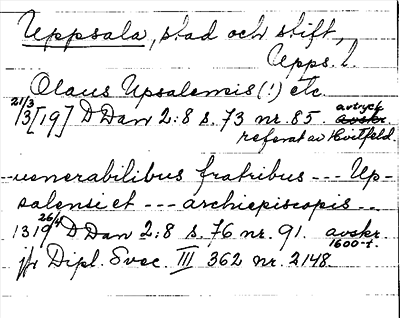 Uppsala, stad och stift,
Upps. l.
Olaus Upsalensis (!) etc.
21/3 13[19] D Dan 2:8 s. 73 nr. 85. avtryck avskr.
referat av Hvitfeld.
venerabilibus fratribus --- Up-
salensi et --- archiepiscopis --
26/4 1319 D Dan 2:8 s. 76 nr. 91. avskr.
1600-t.
jfr Dipl. Svec. III 362 nr. 2148.